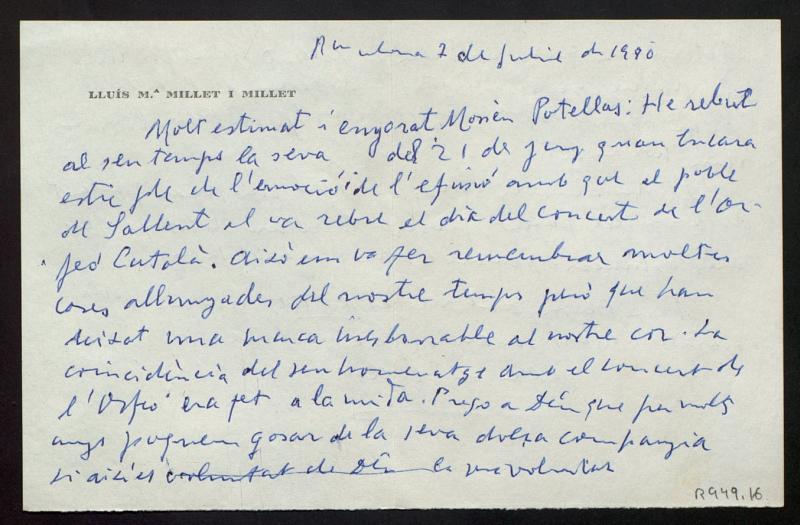 Barcelona 7 de Juliol de 1990
LLUÍS M.ª MILLET I MILLET
Molt estimat i enyorat Mossèn Potellas: He rebut
al seu temps la seva del 21 de juny quan encara
estic ple de l'emoció i de l'efusió amb que el poble
de Sallent el va rebre el dia del concert de l'Or-
feó Català. Això em va fer remembrar moltes
coses allunyades del nostre temps però que han
deixat una marca inesborrable al nostre cor. La
coincidència del seu homenatge amb el concert de
l'Orfeó era fet a la mida. Prego a Déu que per molts
anys poguem gosar de la seva dolça companyia
si així és voluntat de Déu la seva voluntat
R949.16